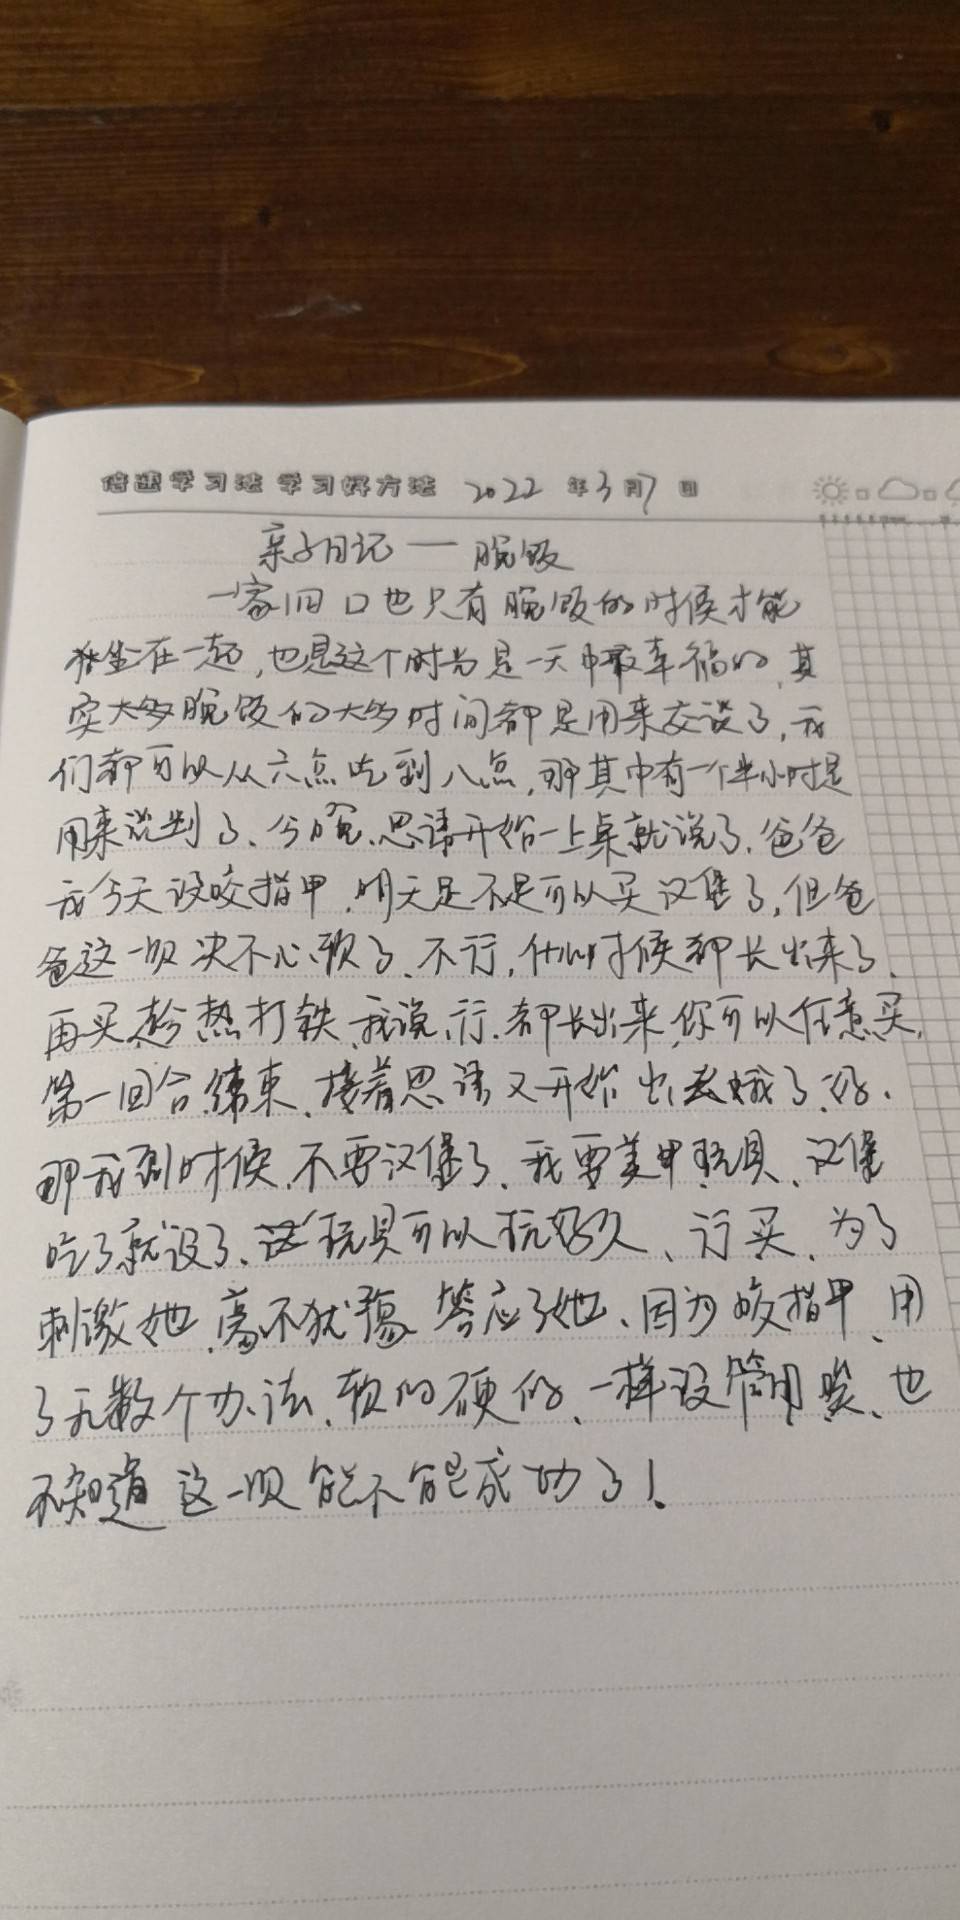 倍速学习法 学习好方法 2022 年3月7日
亲子日记 — 晚饭
一家四口也只有晚饭的时候才能
坐在一起,也是这个时光是一天中最幸福的,其
实大多晚饭的大多时间都是用来交谈了,我
们都可以从六点吃到八点,那其中有一个半小时是
用来说判了、今晚、思语开始一上桌就说了.爸爸
我今天没咬指甲,明天是不是可以买汉堡了,但爸
爸这一次决不心软了、不行,什么时候都长出来了、
再买,趁热打铁,我说,行.都长出来,你可以任意买,
第一回合结束、接着思语又开始出去了,好、
那我到时候,不要汉堡了、我要美甲玩具、汉堡
吃了就没了、这玩具可以玩好久、行买、为了
刺激她,毫不犹豫 答应了她、因为咬指甲、用
了无数个办法、软的硬的、一样没管用、也
不知道这一次能不能成功了!